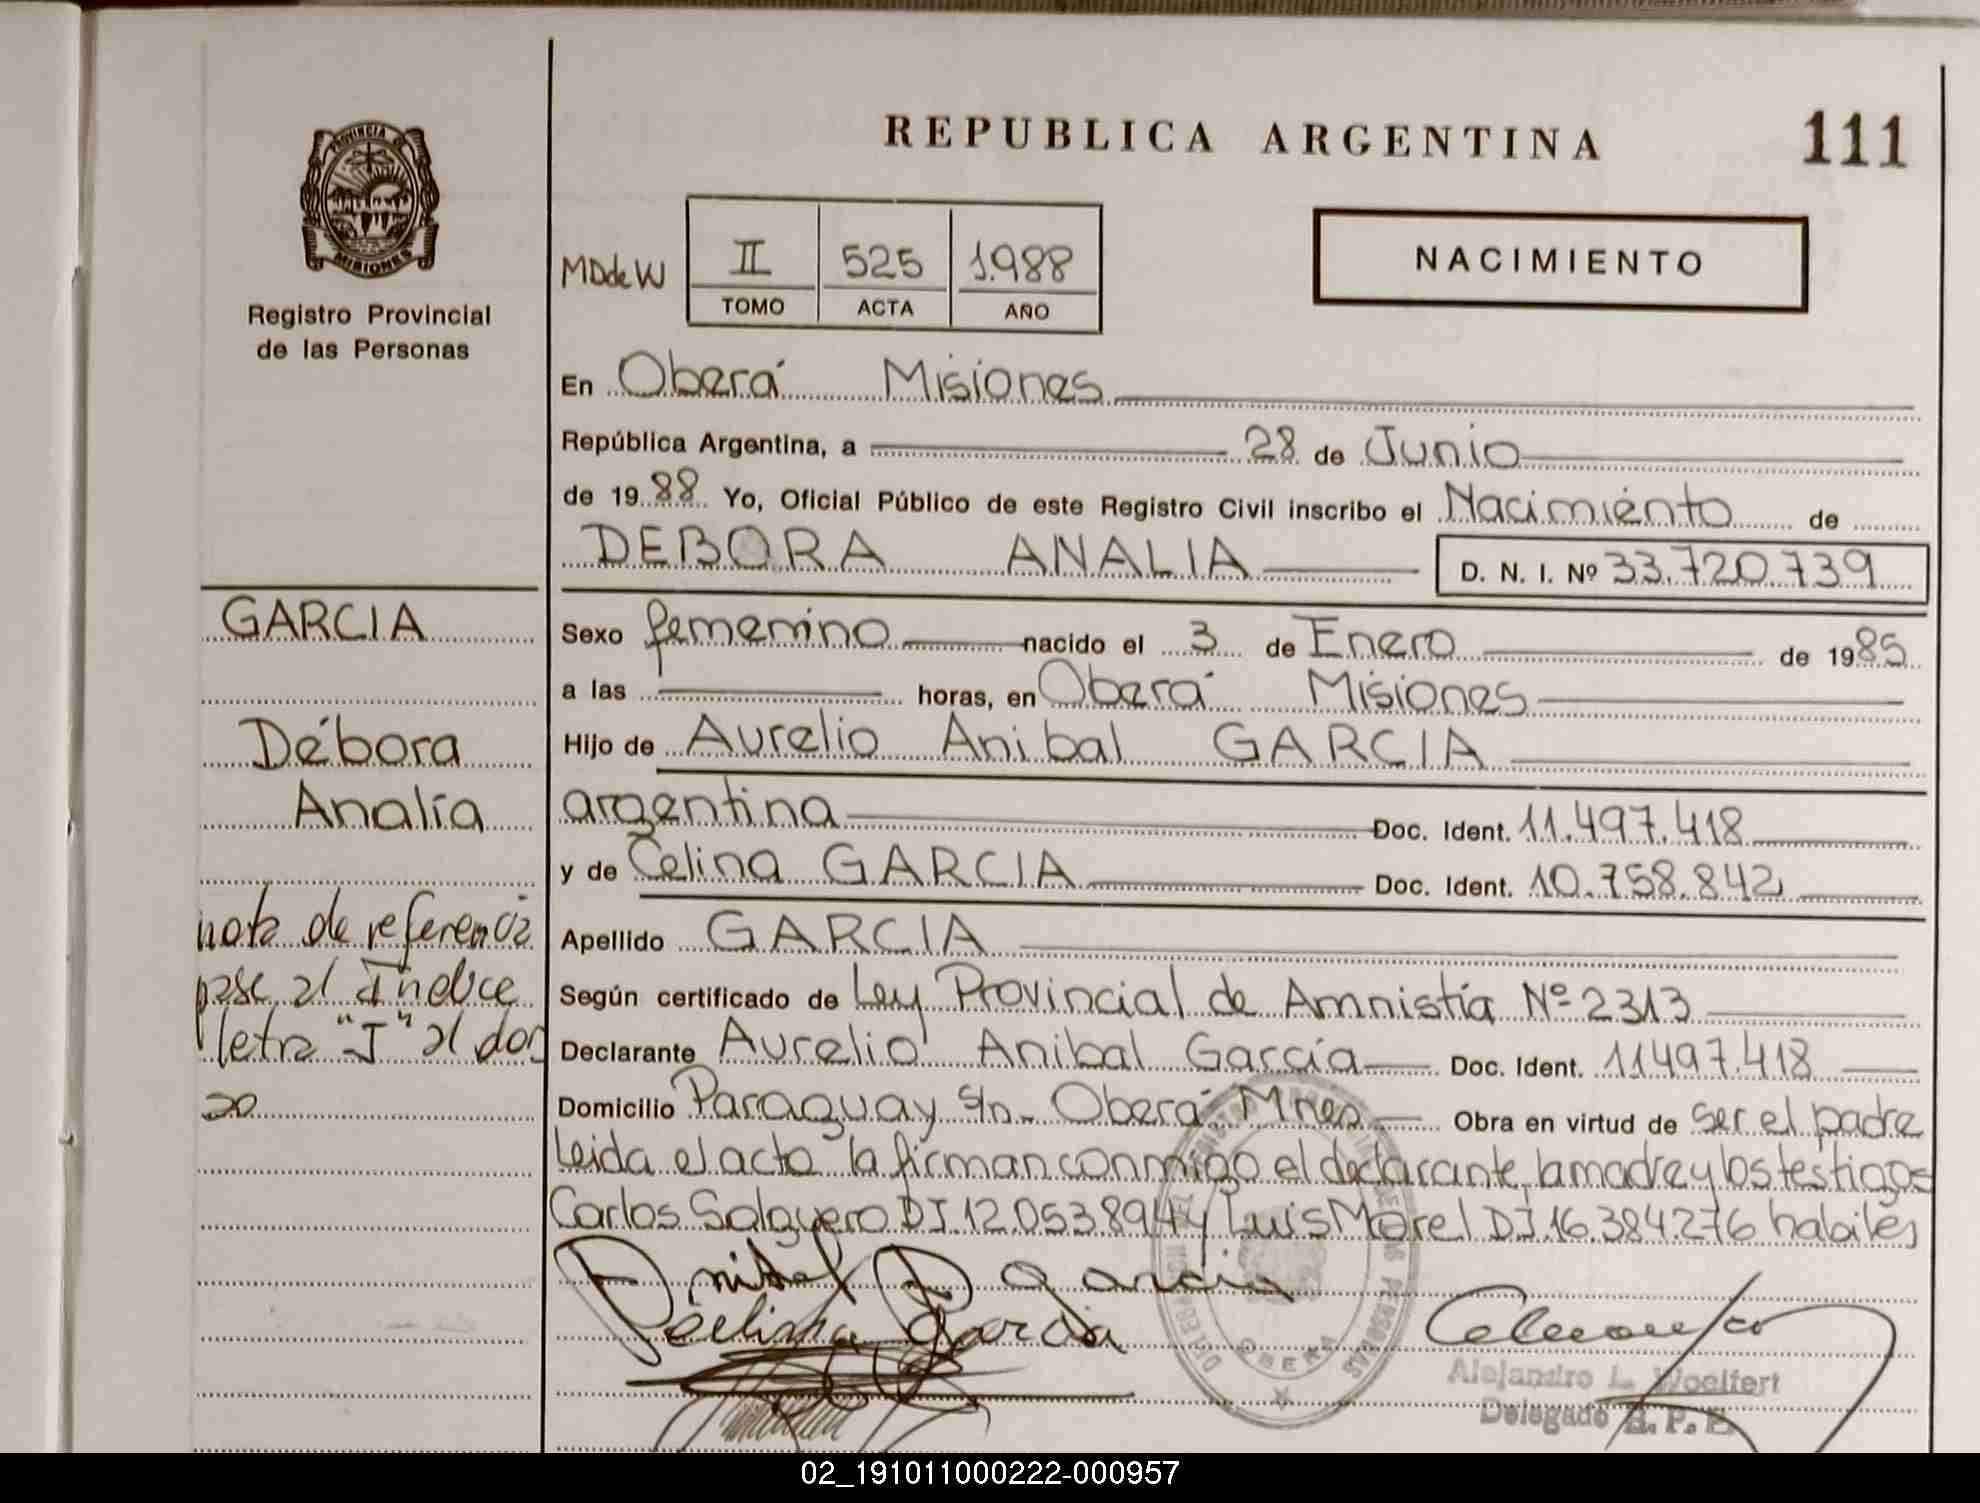 REPUBLICA ARGENTINA
111
PROVINCIA DE
MISIONES
Registro Provincial
de las Personas
MDdeW
II 525 1988
TOMO ACTA AÑO
NACIMIENTO
En Oberá Misiones
República Argentina, a 28 de Junio
de 1988 Yo, Oficial Público de este Registro Civil inscribo el Nacimiento de
DEBORA ANALIA D. N. I. Nº 33.720.739
GARCIA
Débora
Analía
nota de referencia
pase al Indice
letra "J" al dor
so
Sexo femenino nacido el 3 de Enero de 1985
a las horas, en Oberá Misiones
Hijo de Aurelio Anibal GARCIA
argentina Doc. Ident. 11.497.418
y de Celina GARCIA Doc. Ident. 10.758.842
Apellido GARCIA
Según certificado de Ley Provincial de Amnistía Nº 2313
Declarante Aurelio Anibal García Doc. Ident. 11497.418
Domicilio Paraguay s/n - Oberá Mnes Obra en virtud de ser el padre
Leida el acta la firman conmigo el declarante, la madre y los testigos
Carlos Salguero DI.12.053.894 y Luis Morel DI.16.384.276 habiles
Garcia
Celina Garcia
OBERA
Alejandro L. Woelfert
Delegado R. P. P.
02_191011000222-000957